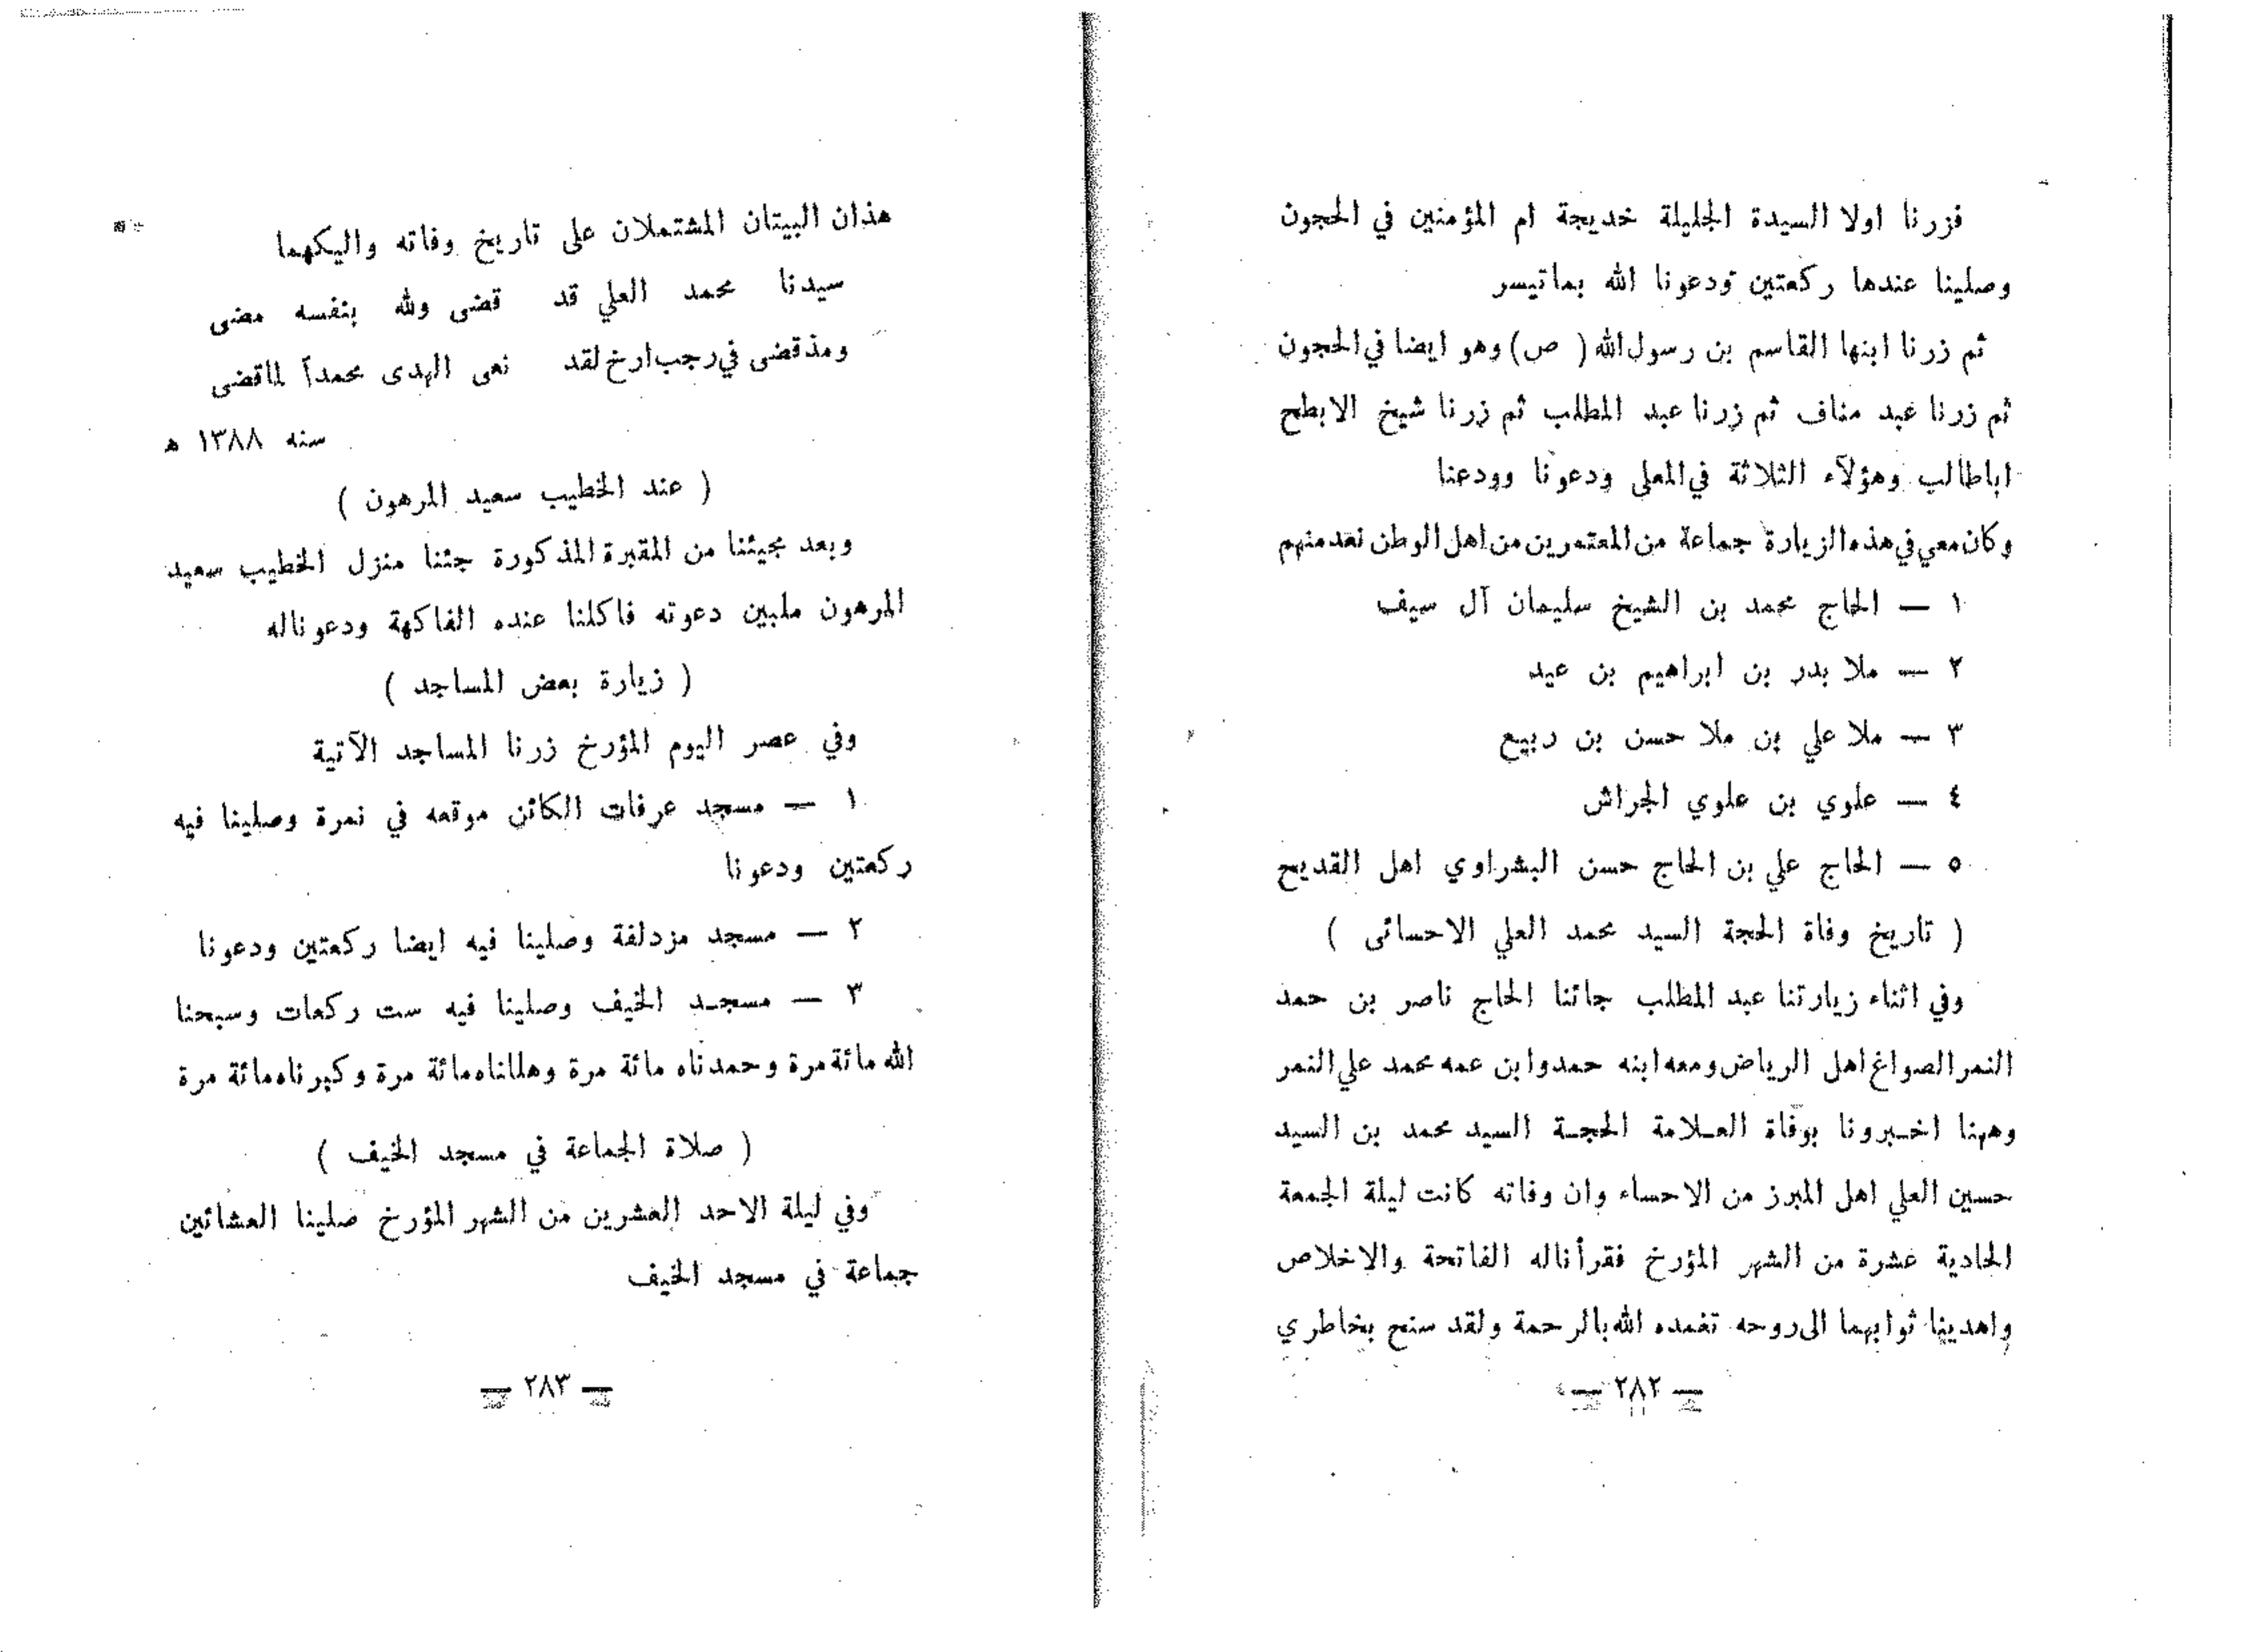 فزرنا اولا السيدة الجليلة خديجة ام المؤمنين في الحجون
وصلينا عندها ركعتين ودعونا الله بماتيسر
ثم زرنا ابنها القاسم بن رسول الله ( ص ) وهو ايضا في الحجون
ثم زرنا عبد مناف ثم زرنا عبد المطلب ثم زرنا شيخ الابطح
اباطالب وهؤلآء الثلاثة في المعلى ودعونا وودعنا
وكان معي في هذه الزيارة جماعة من المعتمرين من اهل الوطن نعد منهم
١ — الحاج محمد بن الشيخ سليمان آل سيف
٢ — ملا بدر بن ابراهيم بن عيد
٣ — ملا علي بن ملا حسن بن ربيع
٤ — علوي بن علوي الجراش
٥ — الحاج علي بن الحاج حسن البشراوي اهل القديح
( تاريخ وفاة الحجة السيد محمد العلي الاحسائى )
وفي اثناء زيارتنا عبد المطلب جائنا الحاج ناصر بن حمد
النمر الصواغ اهل الرياض ومعه ابنه حمد وابن عمه محمد علي النمر
وهينا اخبرونا بوفاة العلامة الحجة السيد محمد بن السيد
حسين العلي اهل المبرز من الاحساء وان وفاته كانت ليلة الجمعة
الحادية عشرة من الشهر المؤرخ فقرأناله الفاتحة والاخلاص
واهدينا ثوابهما الى روحه تغمده الله بالرحمة ولقد سنح بخاطري
— ٢٨٢ —
هذان البيتان المشتملان على تاريخ وفاته واليكهما
سيدنا محمد العلي قد قضى ولله بنفسه مضى
ومذ قضى في رجب ارخ لقد نعى الهدى محمداً لما قضى
سنه ١٣٨٨ ه
( عند الخطيب سعيد المرهون )
وبعد مجيئنا من المقبرة المذكورة جئنا منزل الخطيب سعيد
المرهون ملبين دعوته فاكلنا عنده الفاكهة ودعوناله
( زيارة بعض المساجد )
وفي عصر اليوم المؤرخ زرنا المساجد الآتية
١ — مسجد عرفات الكائن موقعه في نمرة وصلينا فيه
ركعتين ودعونا
٢ — مسجد مزدلفة وصلينا فيه ايضا ركعتين ودعونا
٣ — مسجد الخيف وصلينا فيه ست ركعات وسبحنا
الله مائة مرة وحمدناه مائة مرة وهللناه مائة مرة وكبرناه مائة مرة
( صلاة الجماعة في مسجد الخيف )
وفي ليلة الاحد العشرين من الشهر المؤرخ صلينا العشائين
جماعة في مسجد الخيف
— ٢٨٣ —